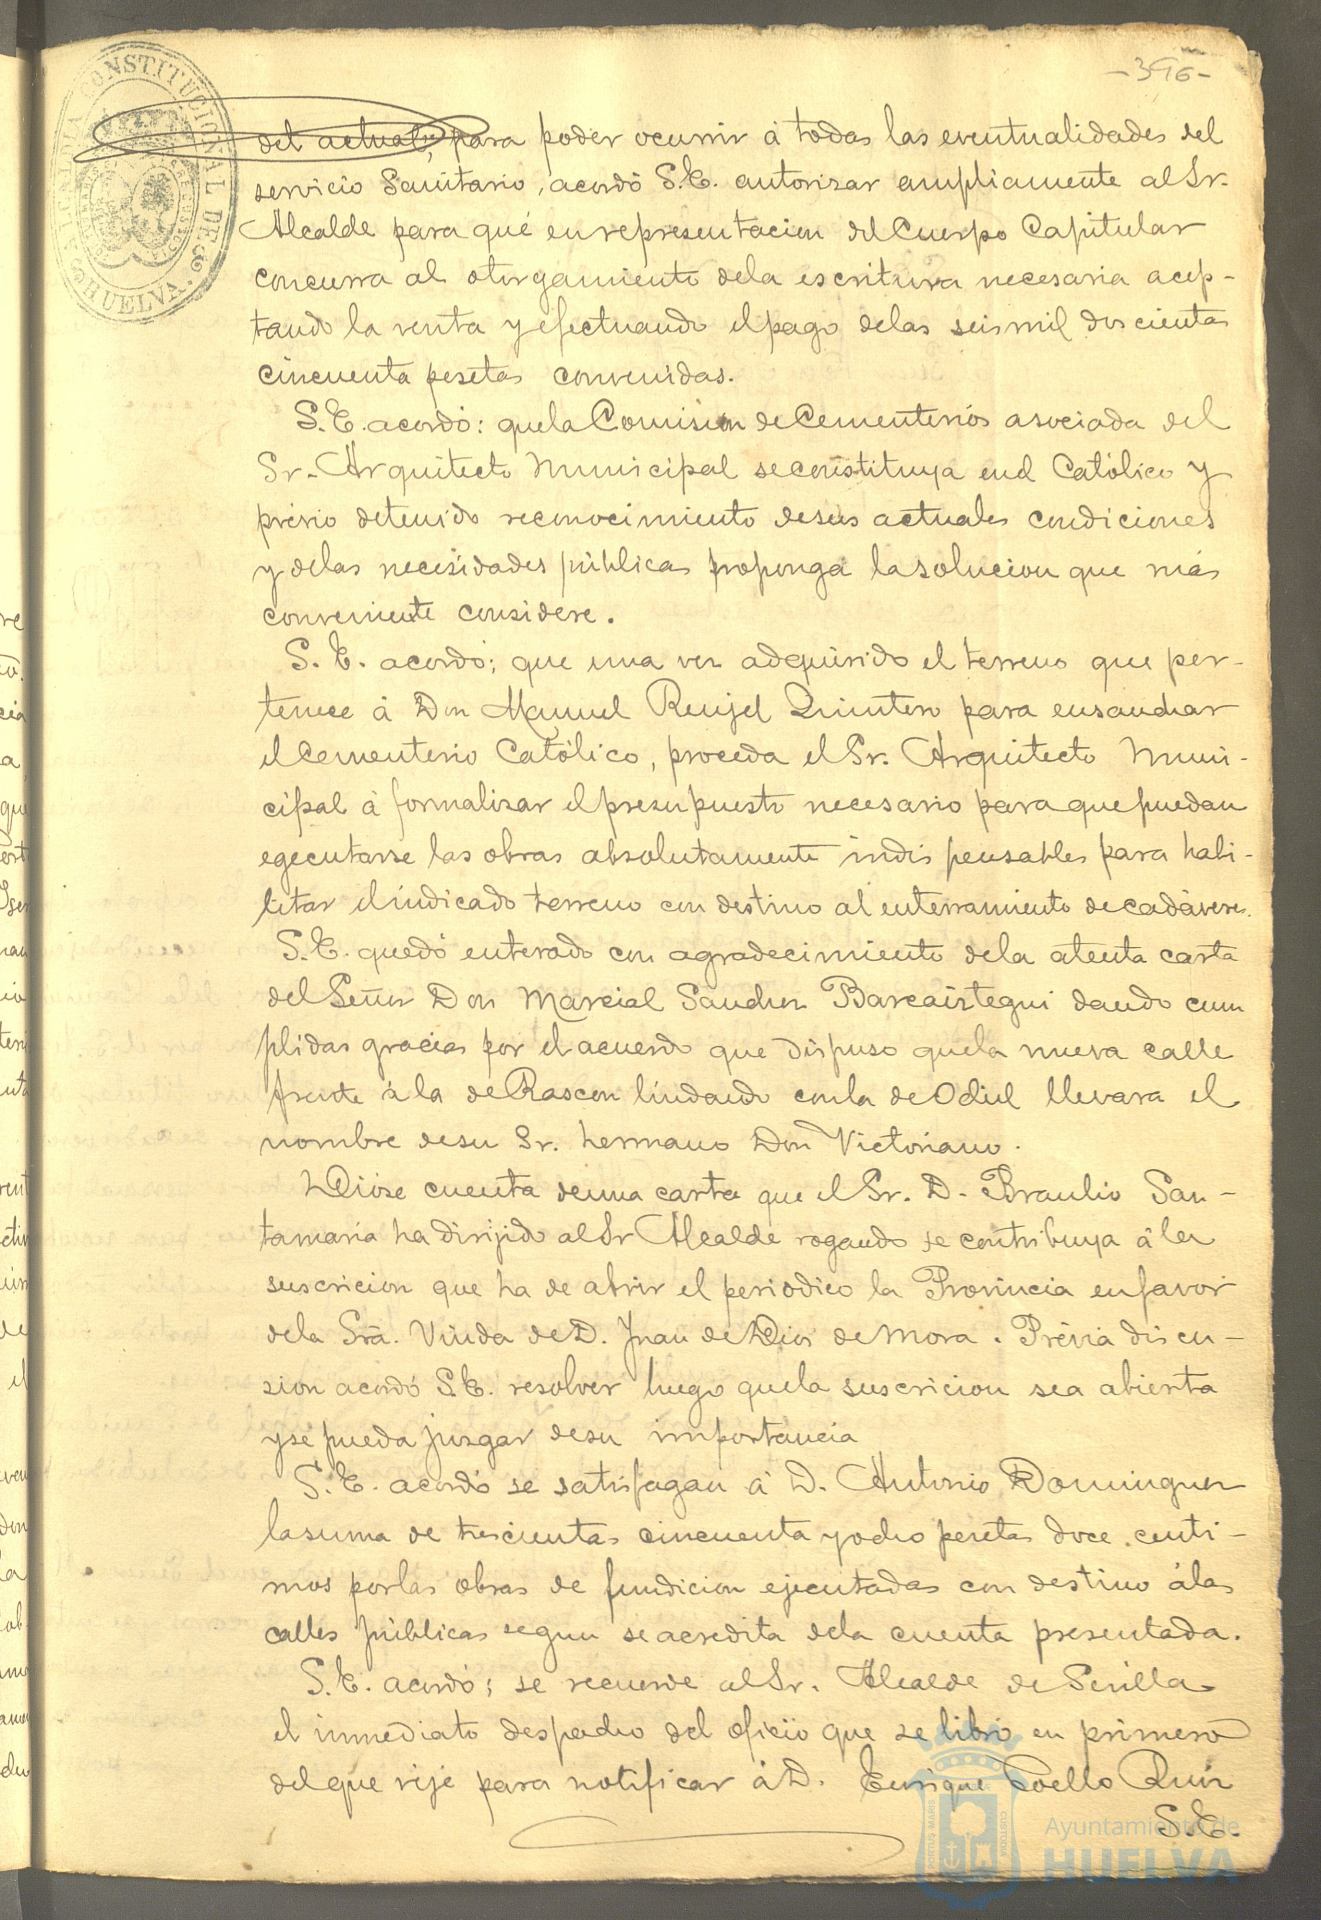 -396-
ALCALDIA CONSTITUCIONAL DE HUELVA.
del actual, para poder ocurrir á todas las eventualidades del
servicio Sanitario, acordó S.E. autorizar ampliamente al Sr.
Alcalde para qué en representacion del Cuerpo Capitular
concurra al otorgamiento dela escritura necesaria acep-
tando la venta y efectuando el pago delas seis mil doscientas
cincuenta pesetas convenidas.
S.E. acordó: quela Comision de Cementerios asociada del
Sr. Arquitecto Municipal se constituya en el Católico y
prévio detenido reconocimiento desus actuales condiciones
y delas necesidades públicas proponga la solucion que más
conveniente considere.
S.E. acordó; que una vez adquirido el terreno que per-
tenece á Don Manuel Renjel Quintero para ensanchar
el Cementerio Católico, proceda el Sr. Arquitecto Muni-
cipal á formalizar el presupuesto necesario para que puedan
egecutarse las obras absolutamente indispensables para habi-
litar el indicado terreno con destino al enterramiento de cadáveres.
S.E. quedó enterado con agradecimiento dela atenta carta
del Señor Don Marcial Sanchez Barcaiztegui dando cum
plidas gracias por el acuerdo que dispuso quela nueva calle
frente á la de Rascon lindando conla de Odiel llevara el
nombre desu Sr. hermano Don Victoriano.
Dióse cuenta deuna carta que el Sr. D. Braulio San-
tamaria ha dirijido al Sr Alcalde rogando se contribuya á la
suscricion que ha de abrir el periodico la Provincia en favor
dela Srã. Viuda de D. Juan de Dios de Mora. Prévia discu-
sion acordó S.E. resolver luego quela suscricion sea abierta
y se pueda juzgar desu importancia
S.E. acordó se satisfagan á D. Antonio Dominguez
la suma de trescientas cincuenta y ocho pesetas doce centi-
mos por las obras de fundicion ejecutadas con destino á las
calles públicas segun se acredita dela cuenta presentada.
S.E. acordó; se recuerde al Sr. Alcalde de Sevilla
el inmediato despacho del oficio que se libró en primero
del que rije para notificar á D. Enrique Coello Ruiz
S.E.
PORTUS MARIS
CUSTODIA
Ayuntamiento de
HUELVA